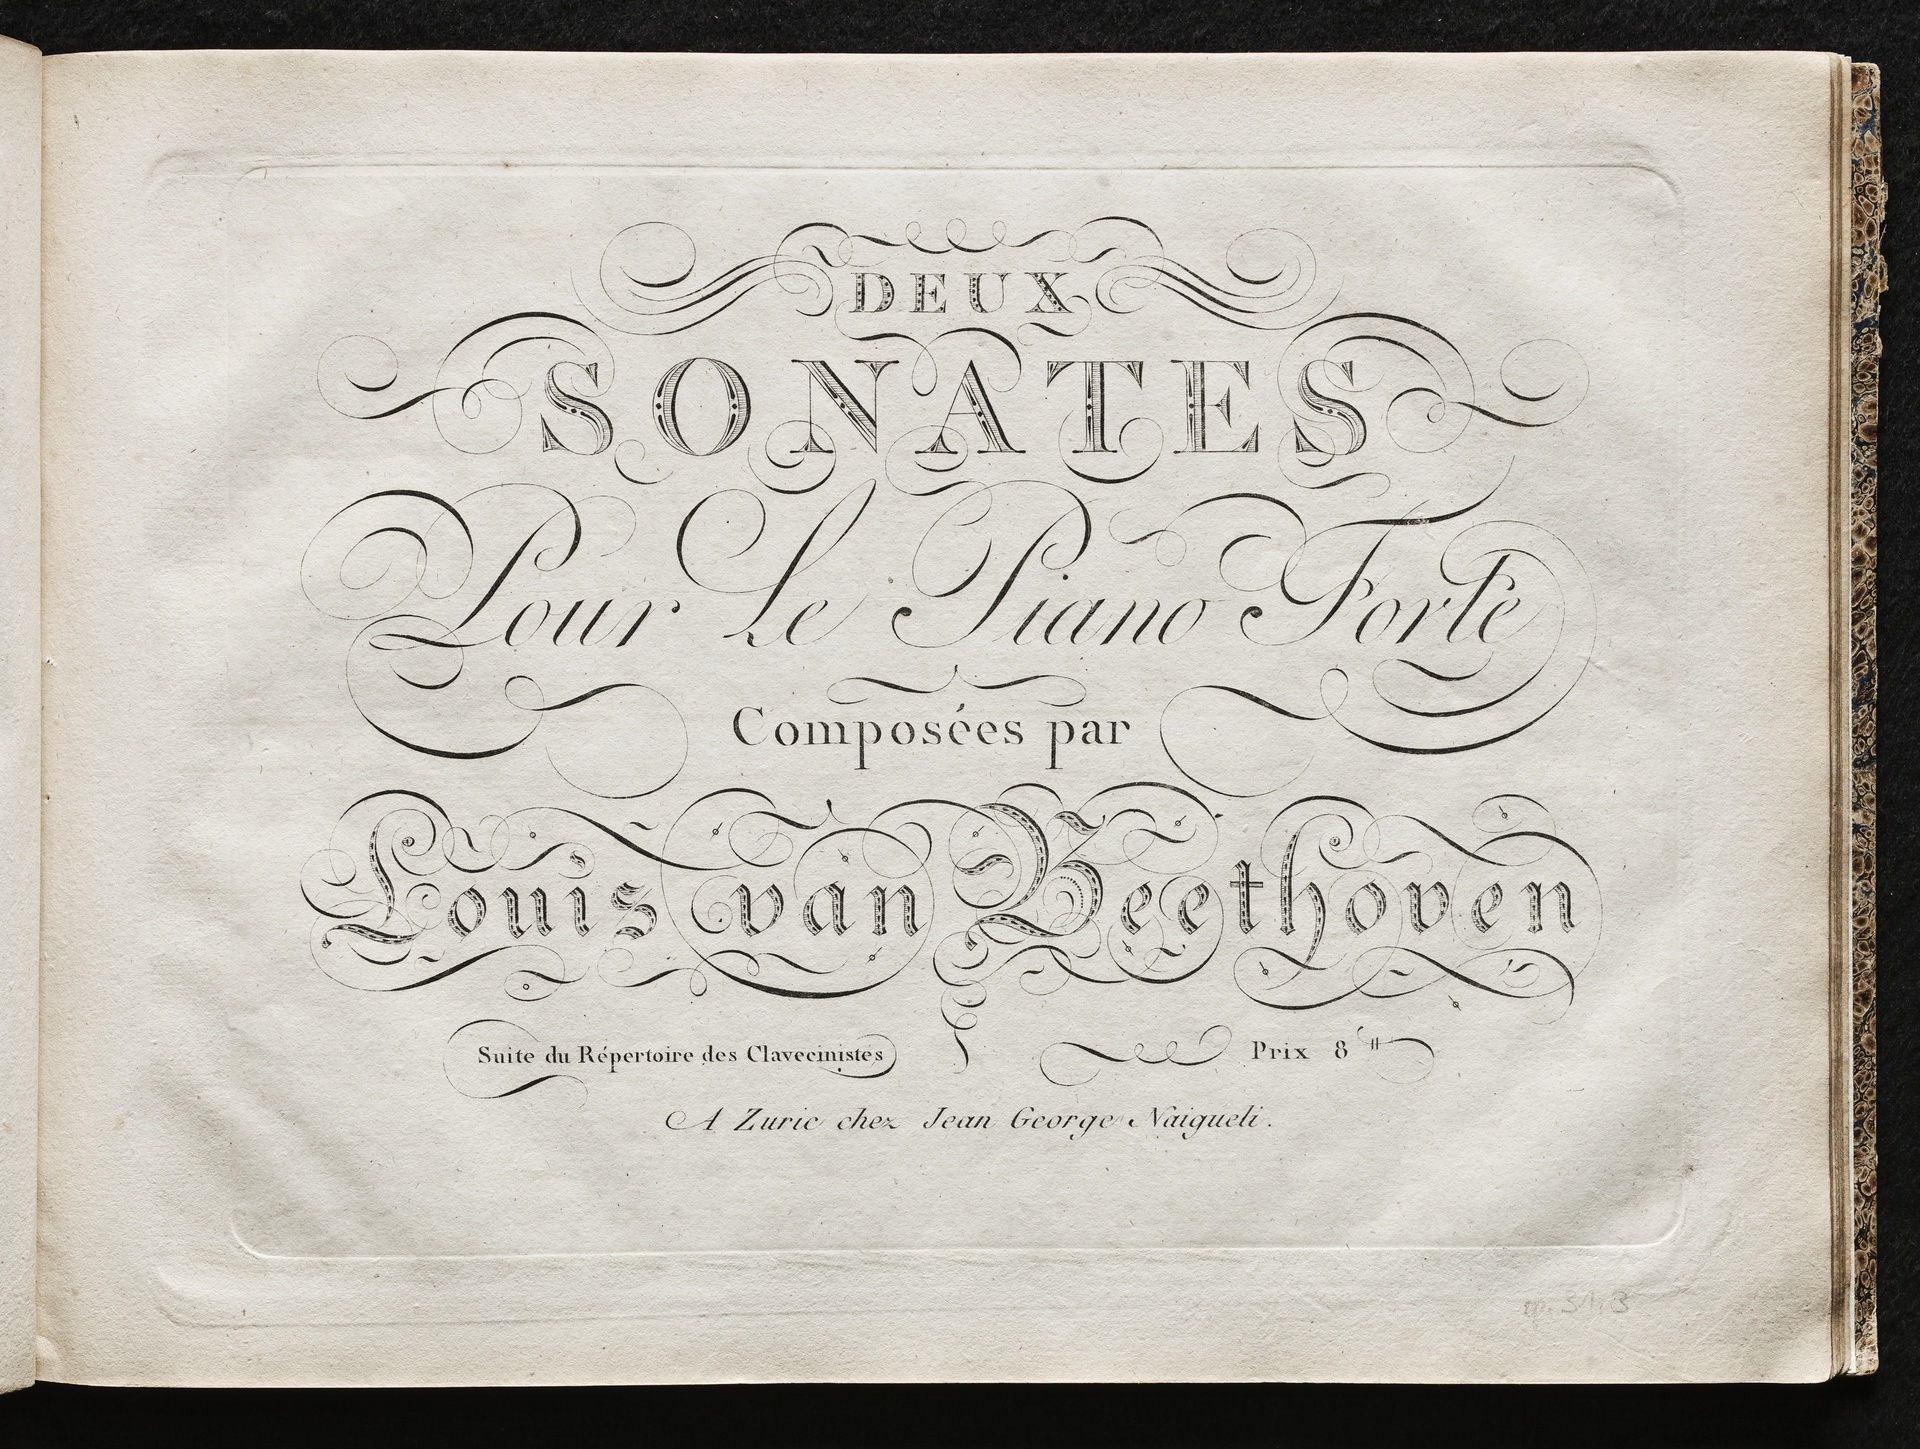 DEUX
SONATES
Pour Le Piano Forte
Composées par
Louis van Beethoven
Suite du Répertoire des Clavecinistes
Prix 8 ₶
A Zuric chez Jean George Naigueli.